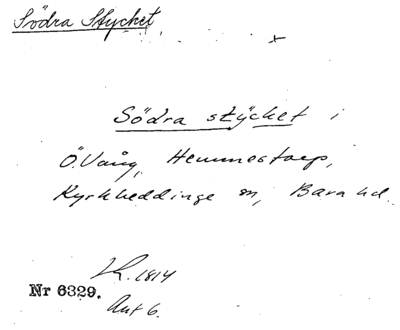 Södra Stycket
Södra stycket i
Ö. Vång, Hemmestorp,
Kyrkheddinge sn, Bara hd.
Lk. 1814
Nr 6329.
Akt 6.